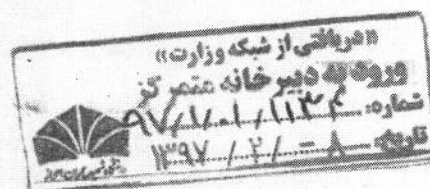 «دریافتی از شبکه وزارت»
ورود به دبیرخانه متمرکز
شماره: ۹۷/۱/۰۱/۱۱۳۴
تاریخ: ۸ - /۲/ ۱۳۹۷